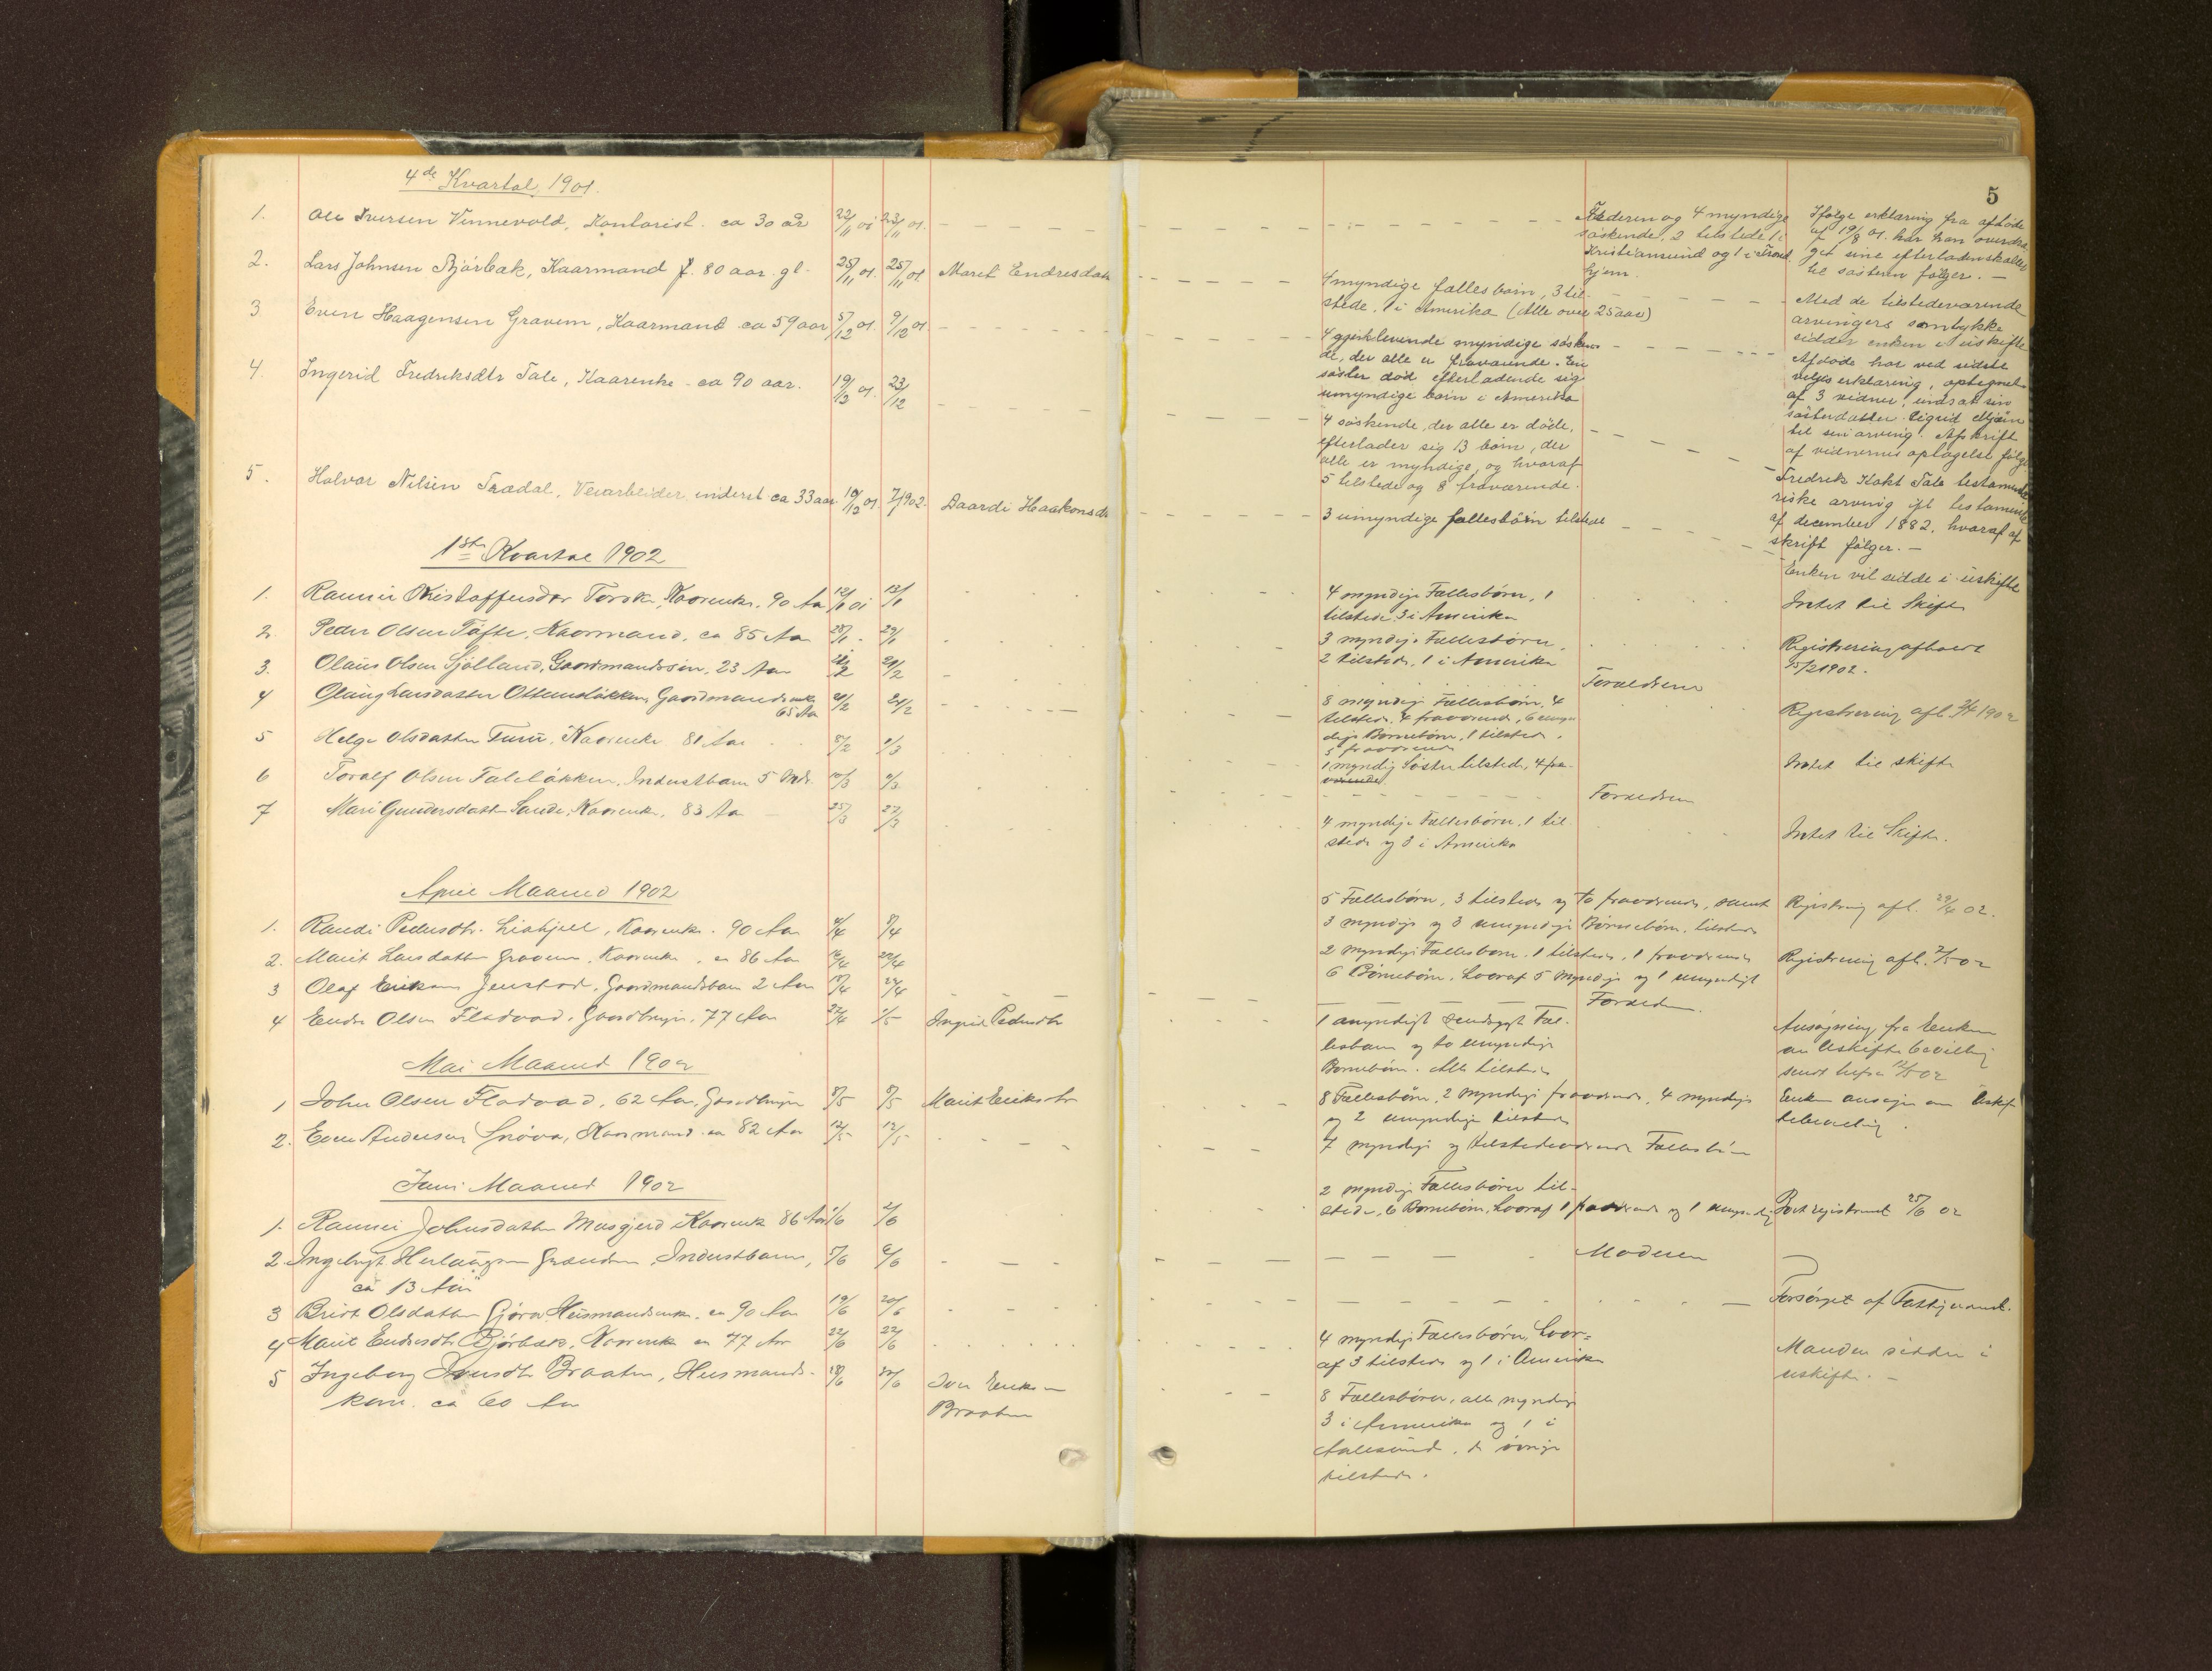 5
4de Kvartal, 1901.
1. Ole Iversen Vinnevold, Kontorist. ca 30 år 22/11 01 23/11 01.
Faderen og 4 myndige
søskende, 2 tilstede 1 i
Kristiansund og 1 i Trond
hjem.
Ifølge erklæring fra afdøde
af 19/8 01. har han overdra
get sine efterladenskaber
til søsteren følger. —
2. Lars Johnsen Bjørbak, Kaarmand f. 80 aar. gl. 25/11 01. 25/11 01 Marit Endresdatr
4 myndige fælles børn, 3 til
stede, 1 i Amerika (Alle over 25 aar)
Med de tilstedeværende
arvingers samtykke
sidder enken i uskifte
3 Even Haagensen Gravem, Kaarmand ca 59 aar 5/12 01. 9/12 01.
4 gjenlevende myndige søsken
de, der alle er fraværende. En
søster død efterladende sig
umyndige børn i Amerika
Afdøde har ved sidste
viljes erklæring, optegnet
af 3 vidner, indsat sin
søsterdatter Sigrid Mjøen
til sin arving. Afskrift
af vidnernes optagelse følge
4. Ingerid Fredriksdtr Tale, Kaarenke - ca 90 aar. 19/12 01. 23/12
4 søskende, der alle er døde,
efterlader sig 13 børn, der
alle er myndige, og hvoraf
5 tilstede og 8 fraværende.
Fredrik Tale testamenta
riske arving ift testamente
af december 1882, hvoraf af
skrift følger. —
5. Halvor Nilsen Trædal, Veiarbeider, inderst ca 33 aar 19/12 01. 7/1 1902. Baardi Haakonsdtr
3 umyndige fællesbørn tilstede
Enken vil sidde i uskifte
1ste Kvartal 1902
1. Rannei Kristoffersdtr Torske, Kaarenke, 90 Aar 12/1 01 13/1
4 myndige Fællesbørn, 1
tilstede 3 i Amerika
Intet til Skifte
2. Peder Olsen Tøfte, Kaarmand, ca 85 Aar 28/1 - 29/1
3 myndige Fællesbørn,
2 tilstede, 1 i Amerika
Registrering afholdt
15/2 1902.
3. Olaus Olsen Sjølland, Gaardmandssøn, 23 Aar 21/2
Forældrene
4 Olaug Larsdatter Ottemsløkken, Gaardmandsenke 65 Aar 21/2
8 myndige Fællesbørn, 4
tilstede, 4 fraværende, 6 umyn
dige Børnebørn, 1 tilstede,
5 fraværende
Registrering afh. 1902
5 Helge Olsdatter Furu, Kaarenke 81 Aar 8/2 1/3
1 myndig Søster tilstede, 4 fra-
værende
Intet til skifte
6 Toralf Olsen Taleløkken, Inderstbarn 5 Mdr 10/3 11/3
Forældrene
7 Mari Gundersdatter Sande, Kaarenke, 83 Aar 25/3 27/3
4 myndige Fællesbørn, 1 til
stede og 3 i Amerika
Intet til Skifte.
April Maaned 1902
1. Randi Pedersdtr. Liahjell, Kaarenke. 90 Aar 4/4 8/4
5 Fællesbørn, 3 tilstede og to fraværende, samt
3 myndige og 3 umyndige Børnebørn, tilstede
Registring afh. 29/4 02.
2. Marit Larsdatter Gravem, Kaarenke, ca 86 Aar 16/4 22/4
2 myndige Fællesbørn, 1 tilstede, 1 fraværende
6 Børnebørn, hvoraf 5 myndige og 1 umyndigt
Registrering afh. 2/5 02
3 Olaf Eriksen Jenstad, Gaardmandsbarn 2 Aar 18/4 24/4
Forældrene
4 Endre Olsen Fladvad, Gaardbruger, 77 Aar 22/4 1/5 Ingrid Pedersdtr
1 umyndigt Fæl-
lesbarn og to umyndige
Børnebørn. Alle tilstede
Ansøgning fra Enken
om Uskifte bevilling
sendt herfra 12/5 02
Mai Maaned 1902
1 John Olsen Fladvad, 62 Aar, Gaardbruger 8/5 9/5 Marit Eriksdtr
8 Fællesbørn, 2 myndige fraværende, 4 myndige
og 2 umyndige tilstede
Enken ansøger om Uskif
tebevilling.
2. Even Andersen Snøva, Kaarmand ca 82 Aar 12/5 12/5
7 myndige og tilstedeværende Fællesbørn
Juni Maaned 1902
1. Rannei Johnsdatter Musgjerd Kaarenke 86 Aar 1/6 2/6
2 myndige Fællesbørn til-
stede, 6 Børnebørn, hvoraf 1 fraværende og 1 umyndig
Boet registreret 25/6 02
2. Ingebrigt Herlaugsen Grænden, Inderstbarn, 5/6 6/6
ca 13 Aar
Moderen
3 Brit Olsdatter Gjøra Husmandsenke, ca 90 Aar 19/6 20/6
Forsørget af Fattigvæsenet.
4 Marit Endresdtr Bjørbak, Kaarenke ca 77 Aar 22/6 22/6
4 myndige Fællesbørn, hvor-
af 3 tilstede og 1 i Amerika
5 Ingeborg Braaten, Husmands-
kone ca 60 Aar 28/6 30/6 Iver Eriksen
Braaten
8 Fællesbørn, alle myndige
3 i Amerika og 1 i
Aalesund, de øvrige
tilstede.
Manden sidder i
uskifte. -